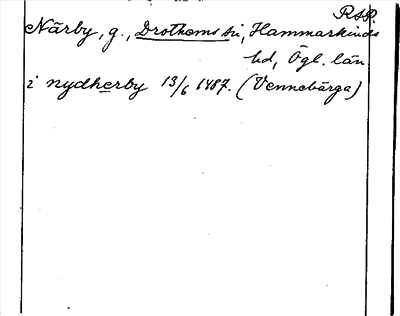 RAP.
Närby, g., Drothems sn, Hammarkinds
hd, Ögl. län.
i nydherby 13/6 1487. (Vennebärga)